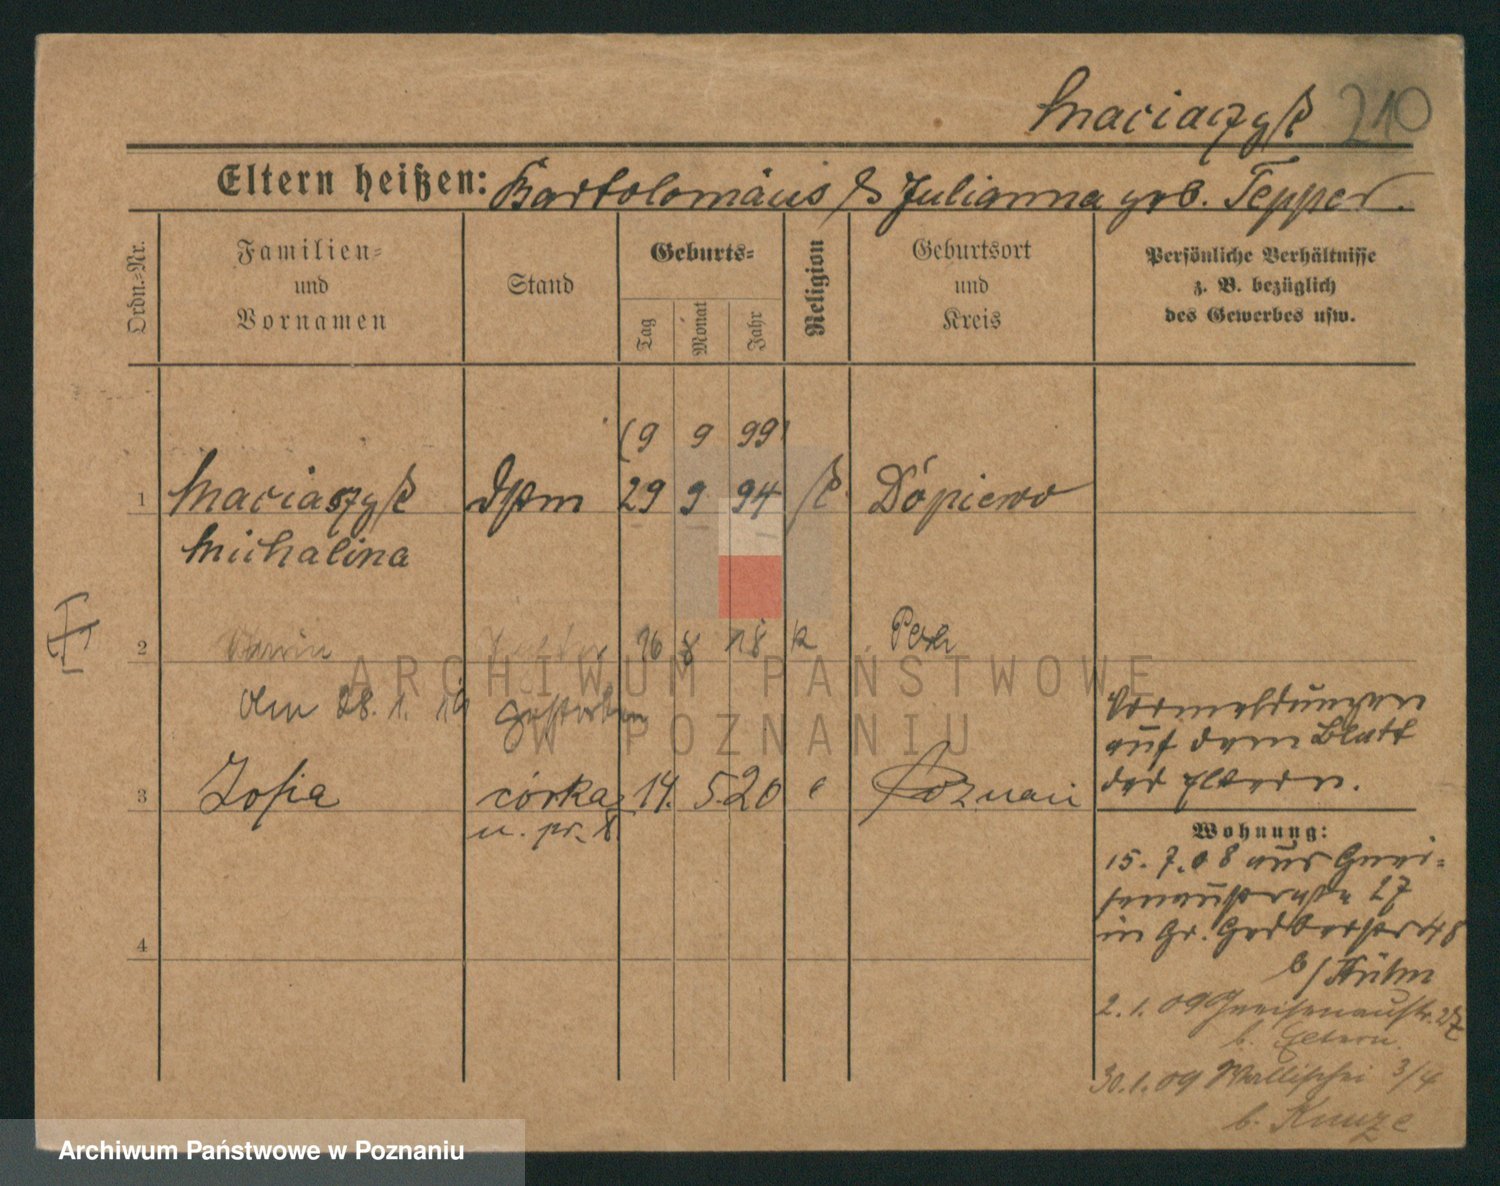 Maciaszyk 210
Eltern heißen: Bartolomäus & Julianna geb. Tepper.
Ordn.-Nr.
Familien-
und
Vornamen
Stand
Geburts-
Tag
Monat
Jahr
Religion
Geburtsort
und
Kreis
Persönliche Verhältnisse
z. B. bezüglich
des Gewerbes usw.
(9 9 99)
1 Maciaszyk 29 9 94 k Dopiewo
Michalina
2 26 8 18 k
am 28. 1. 19 gestorben
Vormeldungen
auf dem Blatt
der Eltern.
3 Zofia córka 14. 5. 20 Poznań
n. pr. k.
Wohnung:
15. 7. 08 aus Gnei-
senaustraße 27
in Gr. Gerberstr 48
b/ Kühn
4
2. 1. 09 Gneisenaustr. 27
b. Eltern.
30. 1. 09 Wallischei 3/4
b. Kunze
ARCHIWUM PAŃSTWOWE
W POZNANIU
Archiwum Państwowe w Poznaniu